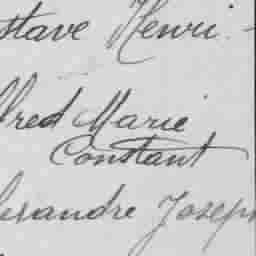 stave Henri -
lfred Marie
Constant
lexandre Joseph